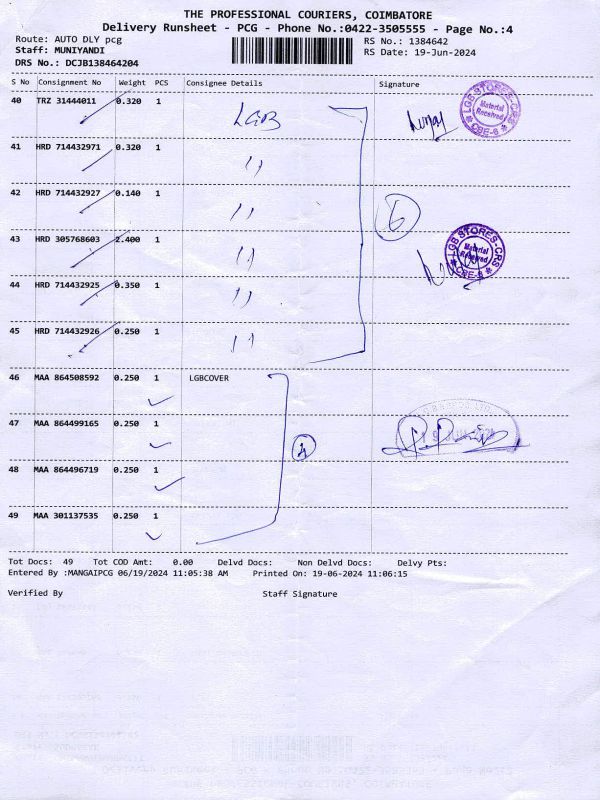 THE PROFESSIONAL COURIERS, COIMBATORE
Delivery Runsheet - PCG - Phone No.:0422-3505555 - Page No.:4
Route: AUTO DLY pcg
RS No.: 1384642
Staff: MUNIYANDI
RS Date: 19-Jun-2024
DRS No.: DCJB138464204
S No Consignment No Weight PCS Consignee Details Signature
40 TRZ 31444011 0.320 1 LGB
LGB STORES-CRS Material Received CBE-6
41 HRD 714432971 0.320 1 ''
42 HRD 714432927 0.140 1 ''
6
43 HRD 305768603 2.400 1 ''
LGB STORES-CRS Material Received CBE-6
44 HRD 714432925 0.350 1 ''
45 HRD 714432926 0.250 1 ''
46 MAA 864508592 0.250 1 LGBCOVER
47 MAA 864499165 0.250 1
4
48 MAA 864496719 0.250 1
49 MAA 301137535 0.250 1
Tot Docs: 49 Tot COD Amt: 0.00 Delvd Docs: Non Delvd Docs: Delvy Pts:
Entered By :MANGAIPCG 06/19/2024 11:05:38 AM Printed On: 19-06-2024 11:06:15
Verified By Staff Signature